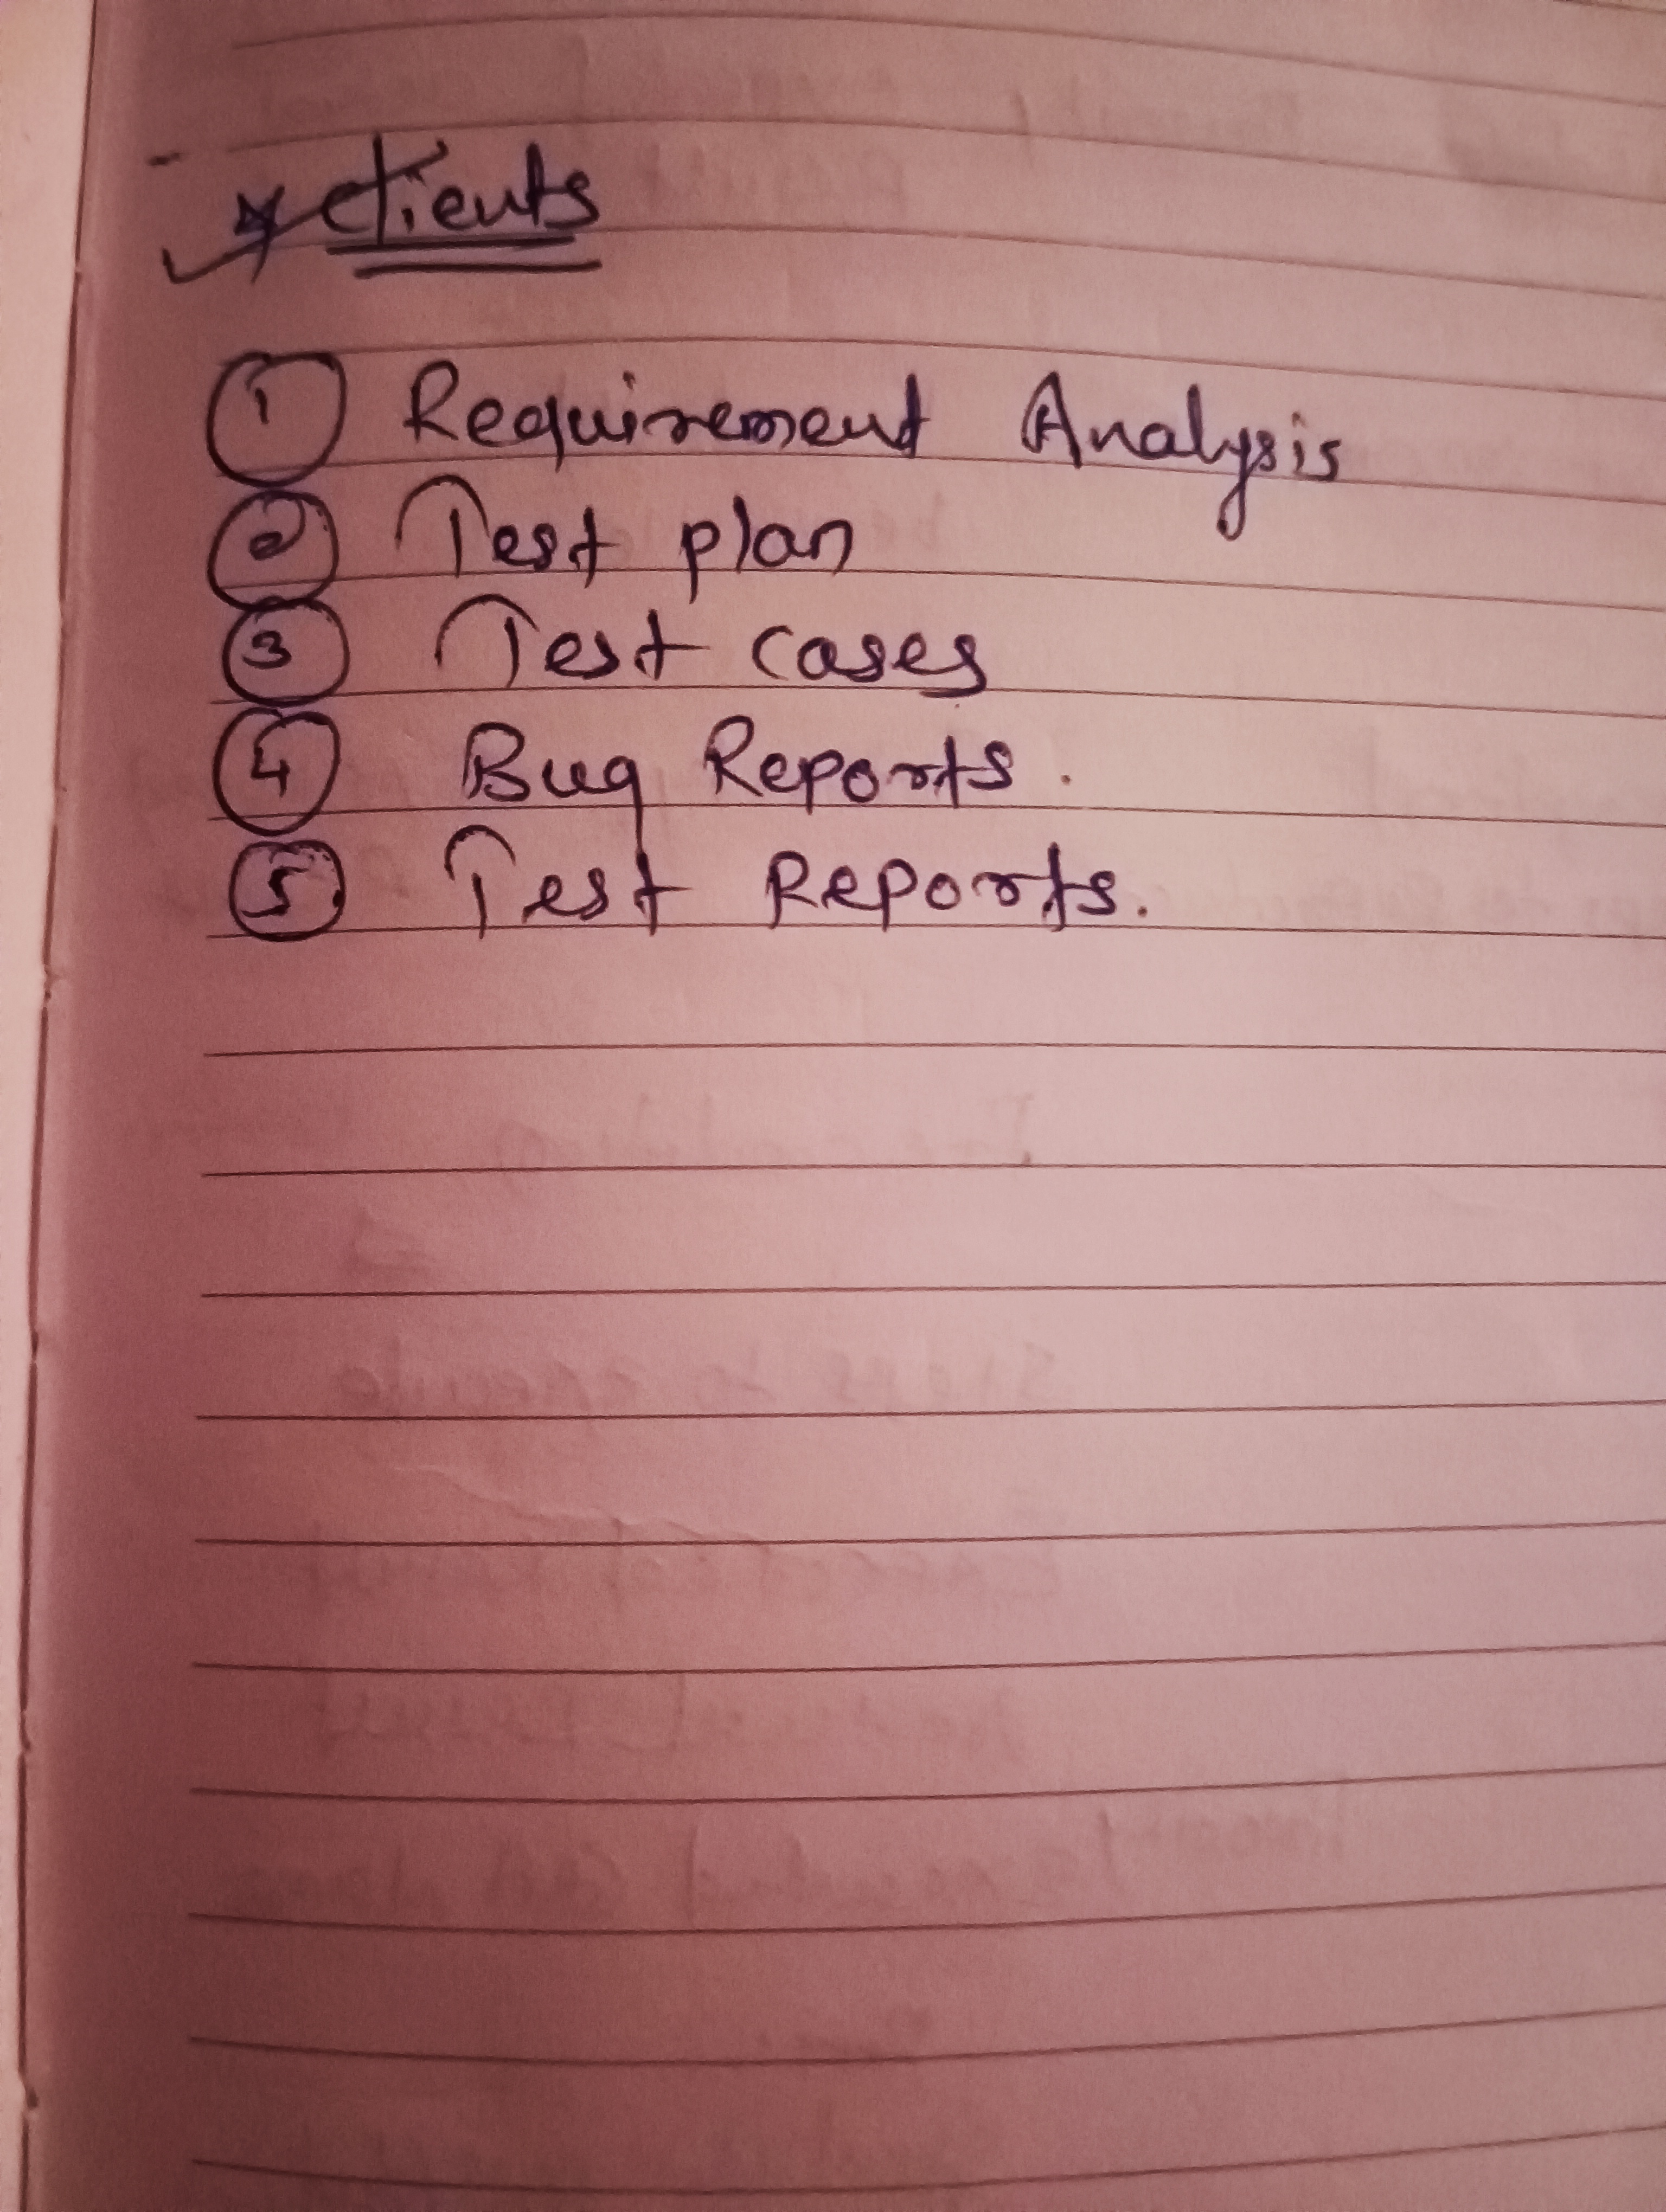 * Clients
① Requirement Analysis
② Test plan
③ Test cases
④ Bug Reports.
⑤ Test Reports.